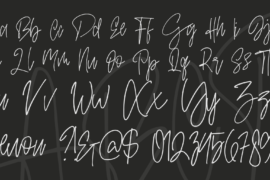 a Bb Cc Dd Ee Ff Gg Hh Ii Jj
Ll Mm Nn Oo Pp Qq Rr Ss
u Vv Ww Xx Yy Zz
?!&@$ 0123456789